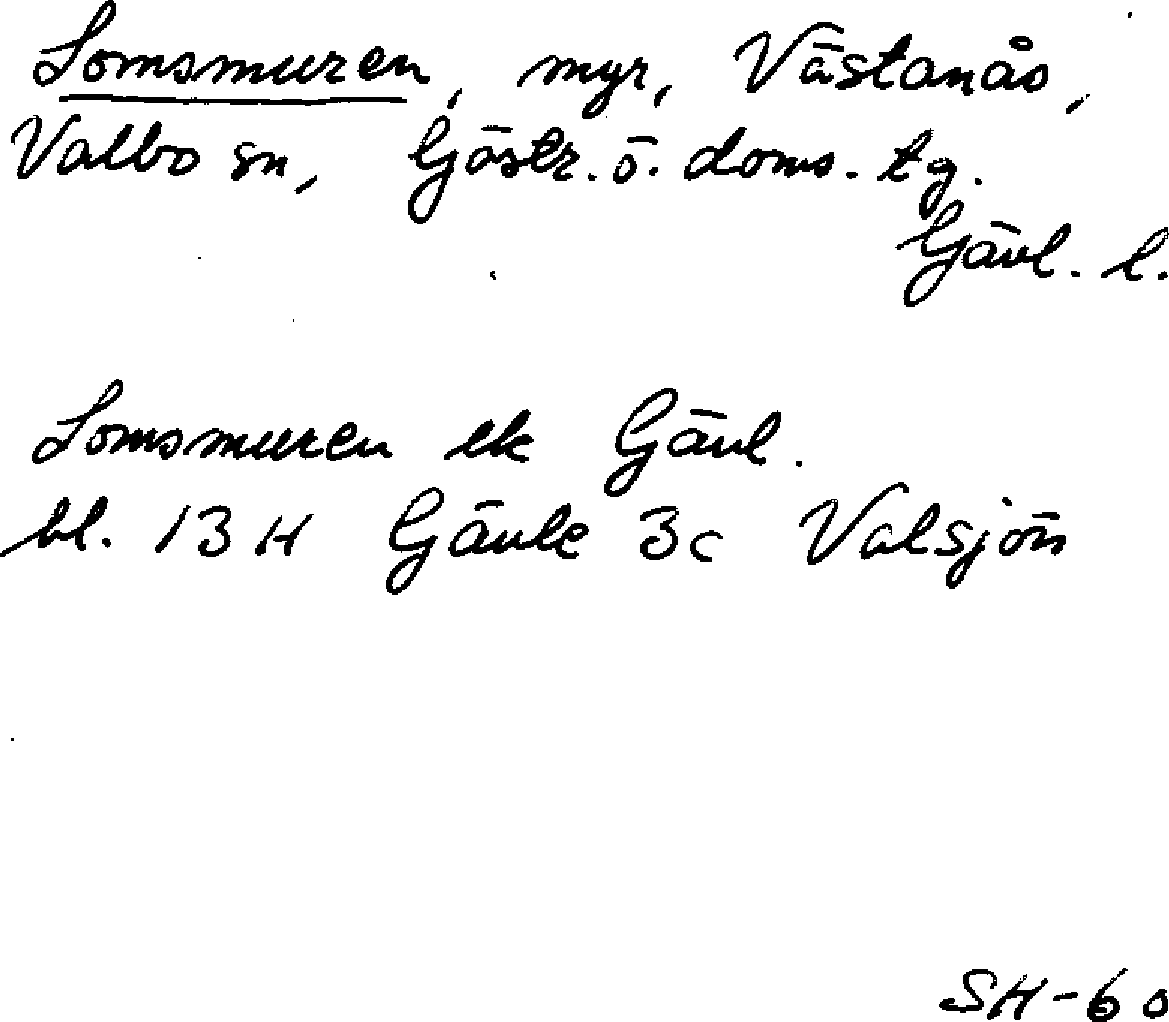 Lomsmuren, myr, Västanås,
Valbo sn, Gästr. ö. doms. tg.
Gävl. l.
Lomsmuren ek Gävl.
bl. 13H Gävle 3c Valsjön
SH-60